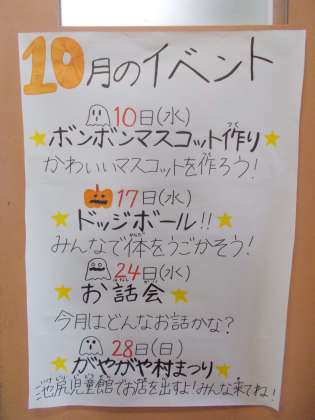 10月のイベント
10日(水)
ボンボンマスコット作り
かわいいマスコットを作ろう!
17日(水)
ドッジボール!!
みんなで体をうごかそう!
24日(水)
お話会
今月はどんなお話かな?
28日(日)
がやがや村まつり
池尻児童館でお店を出すよ!みんな来てね!